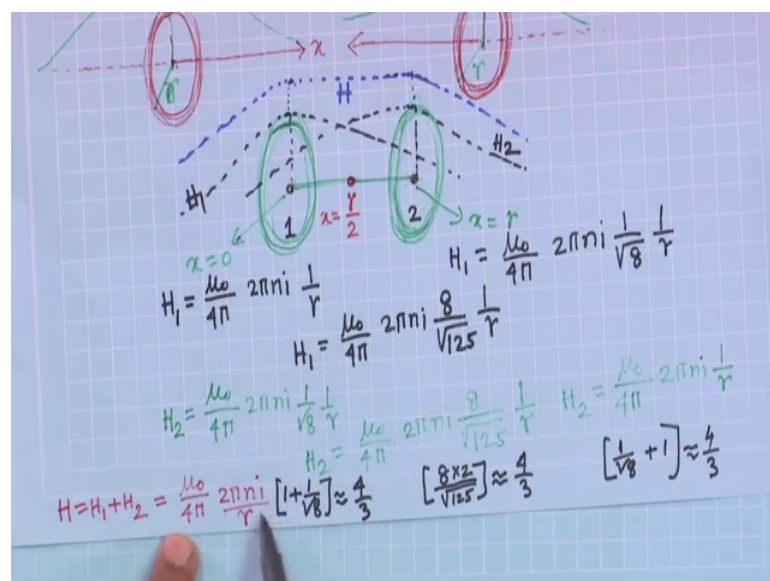 x
r r
H
H₁ H2
1 x=r/2 2
x=0 x=r
H₁ = μ₀/4π 2πni 1/r
H₁ = μ₀/4π 2πni 8/√125 1/r
H₁ = μ₀/4π 2πni 1/√8 1/r
H₂ = μ₀/4π 2πni 1/√8 1/r
H₂ = μ₀/4π 2πni 8/√125 1/r
H₂ = μ₀/4π 2πni 1/r
H=H₁+H₂ = μ₀/4π 2πni/r [1+1/√8]≈4/3 [8×2/√125]≈4/3 [1/√8 +1]≈4/3